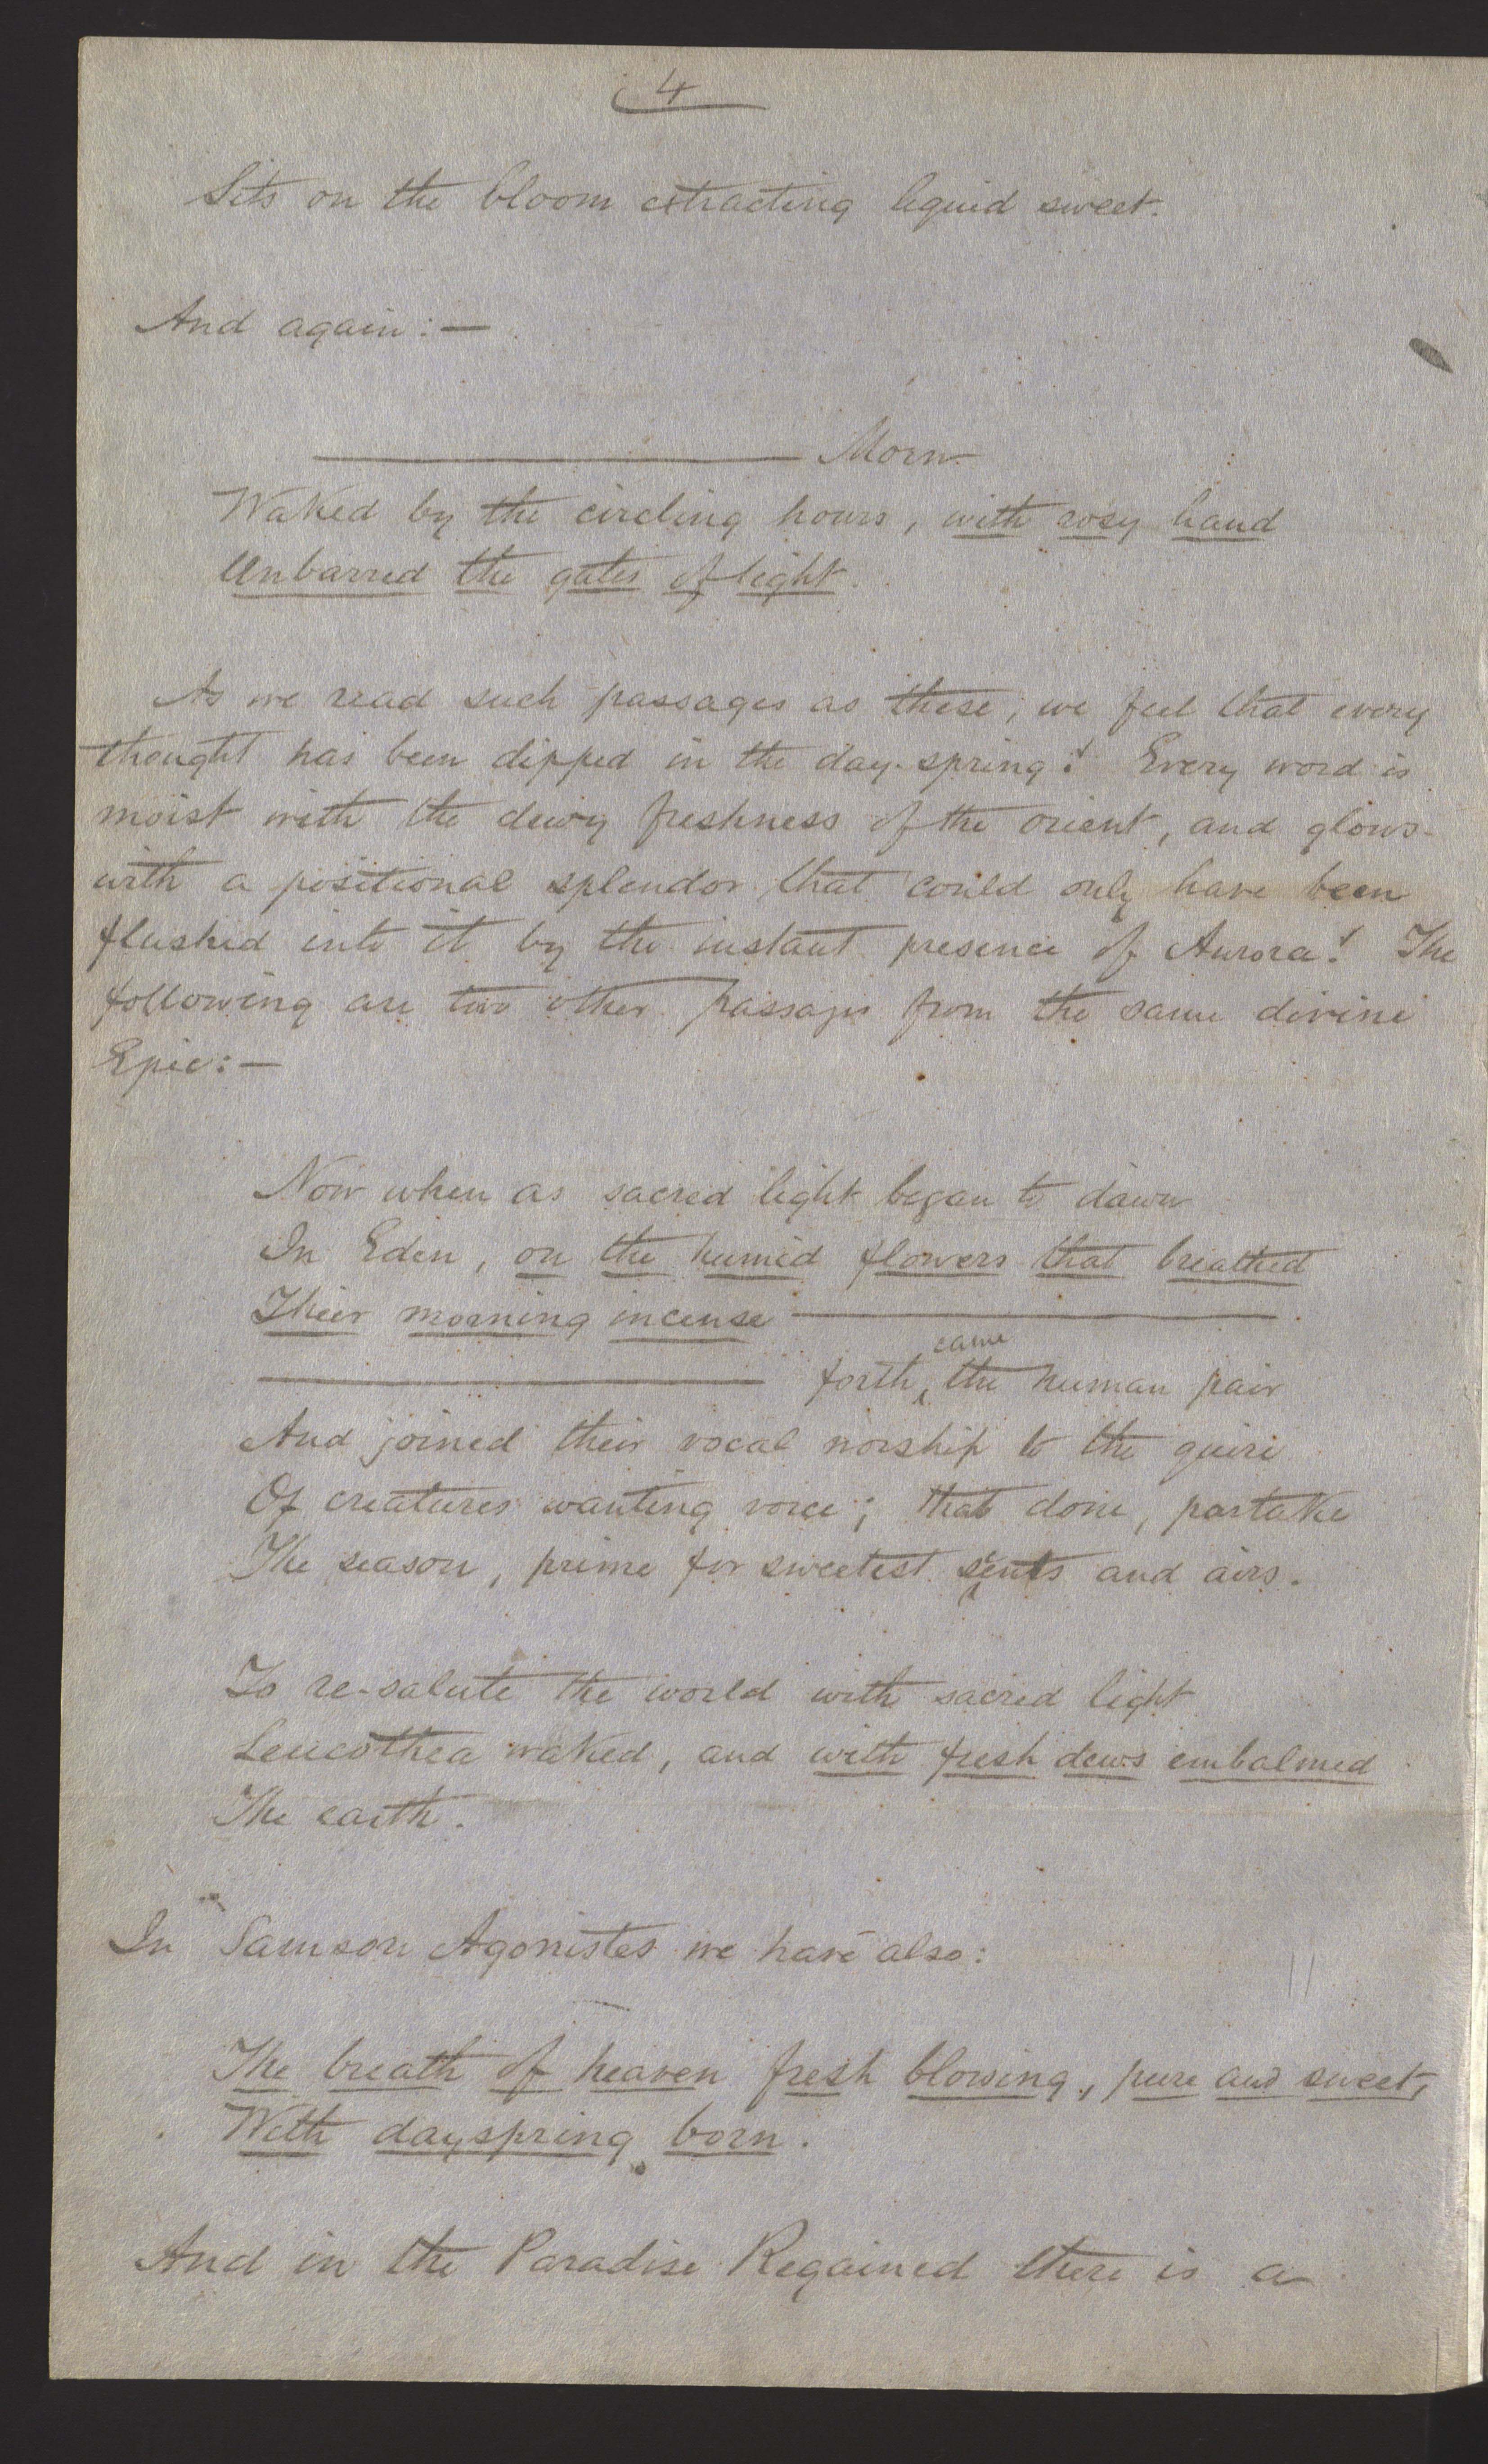 4
Sits on the bloom extracting liquid sweet.
And again:—
——— Morn
Waked by the circling hours, with rosy hand
Unbarred the gates of light.
As we read such passages as these, we feel that every
thought has been dipped in the day-spring! Every word is
moist with the dewy freshness of the orient, and glows
with a positional splendor that could only have been
flushed into it by the instant presence of Aurora! The
following are two other passages from the same divine
Epic:—
Now when as sacred light began to dawn
In Eden, on the humid flowers that breathed
Their morning incense ———.
——— forth came the human pair
And joined their vocal worship to the quire
Of creatures wanting voice; that done, partake
The season, prime for sweetest scents and airs.
To re-salute the world with sacred light
Leucothea waked, and with fresh dews embalmed
The earth.
In Samson Agonistes we have also:
The breath of heaven fresh blowing, pure and sweet,
With dayspring born.
And in the Paradise Regained there is a